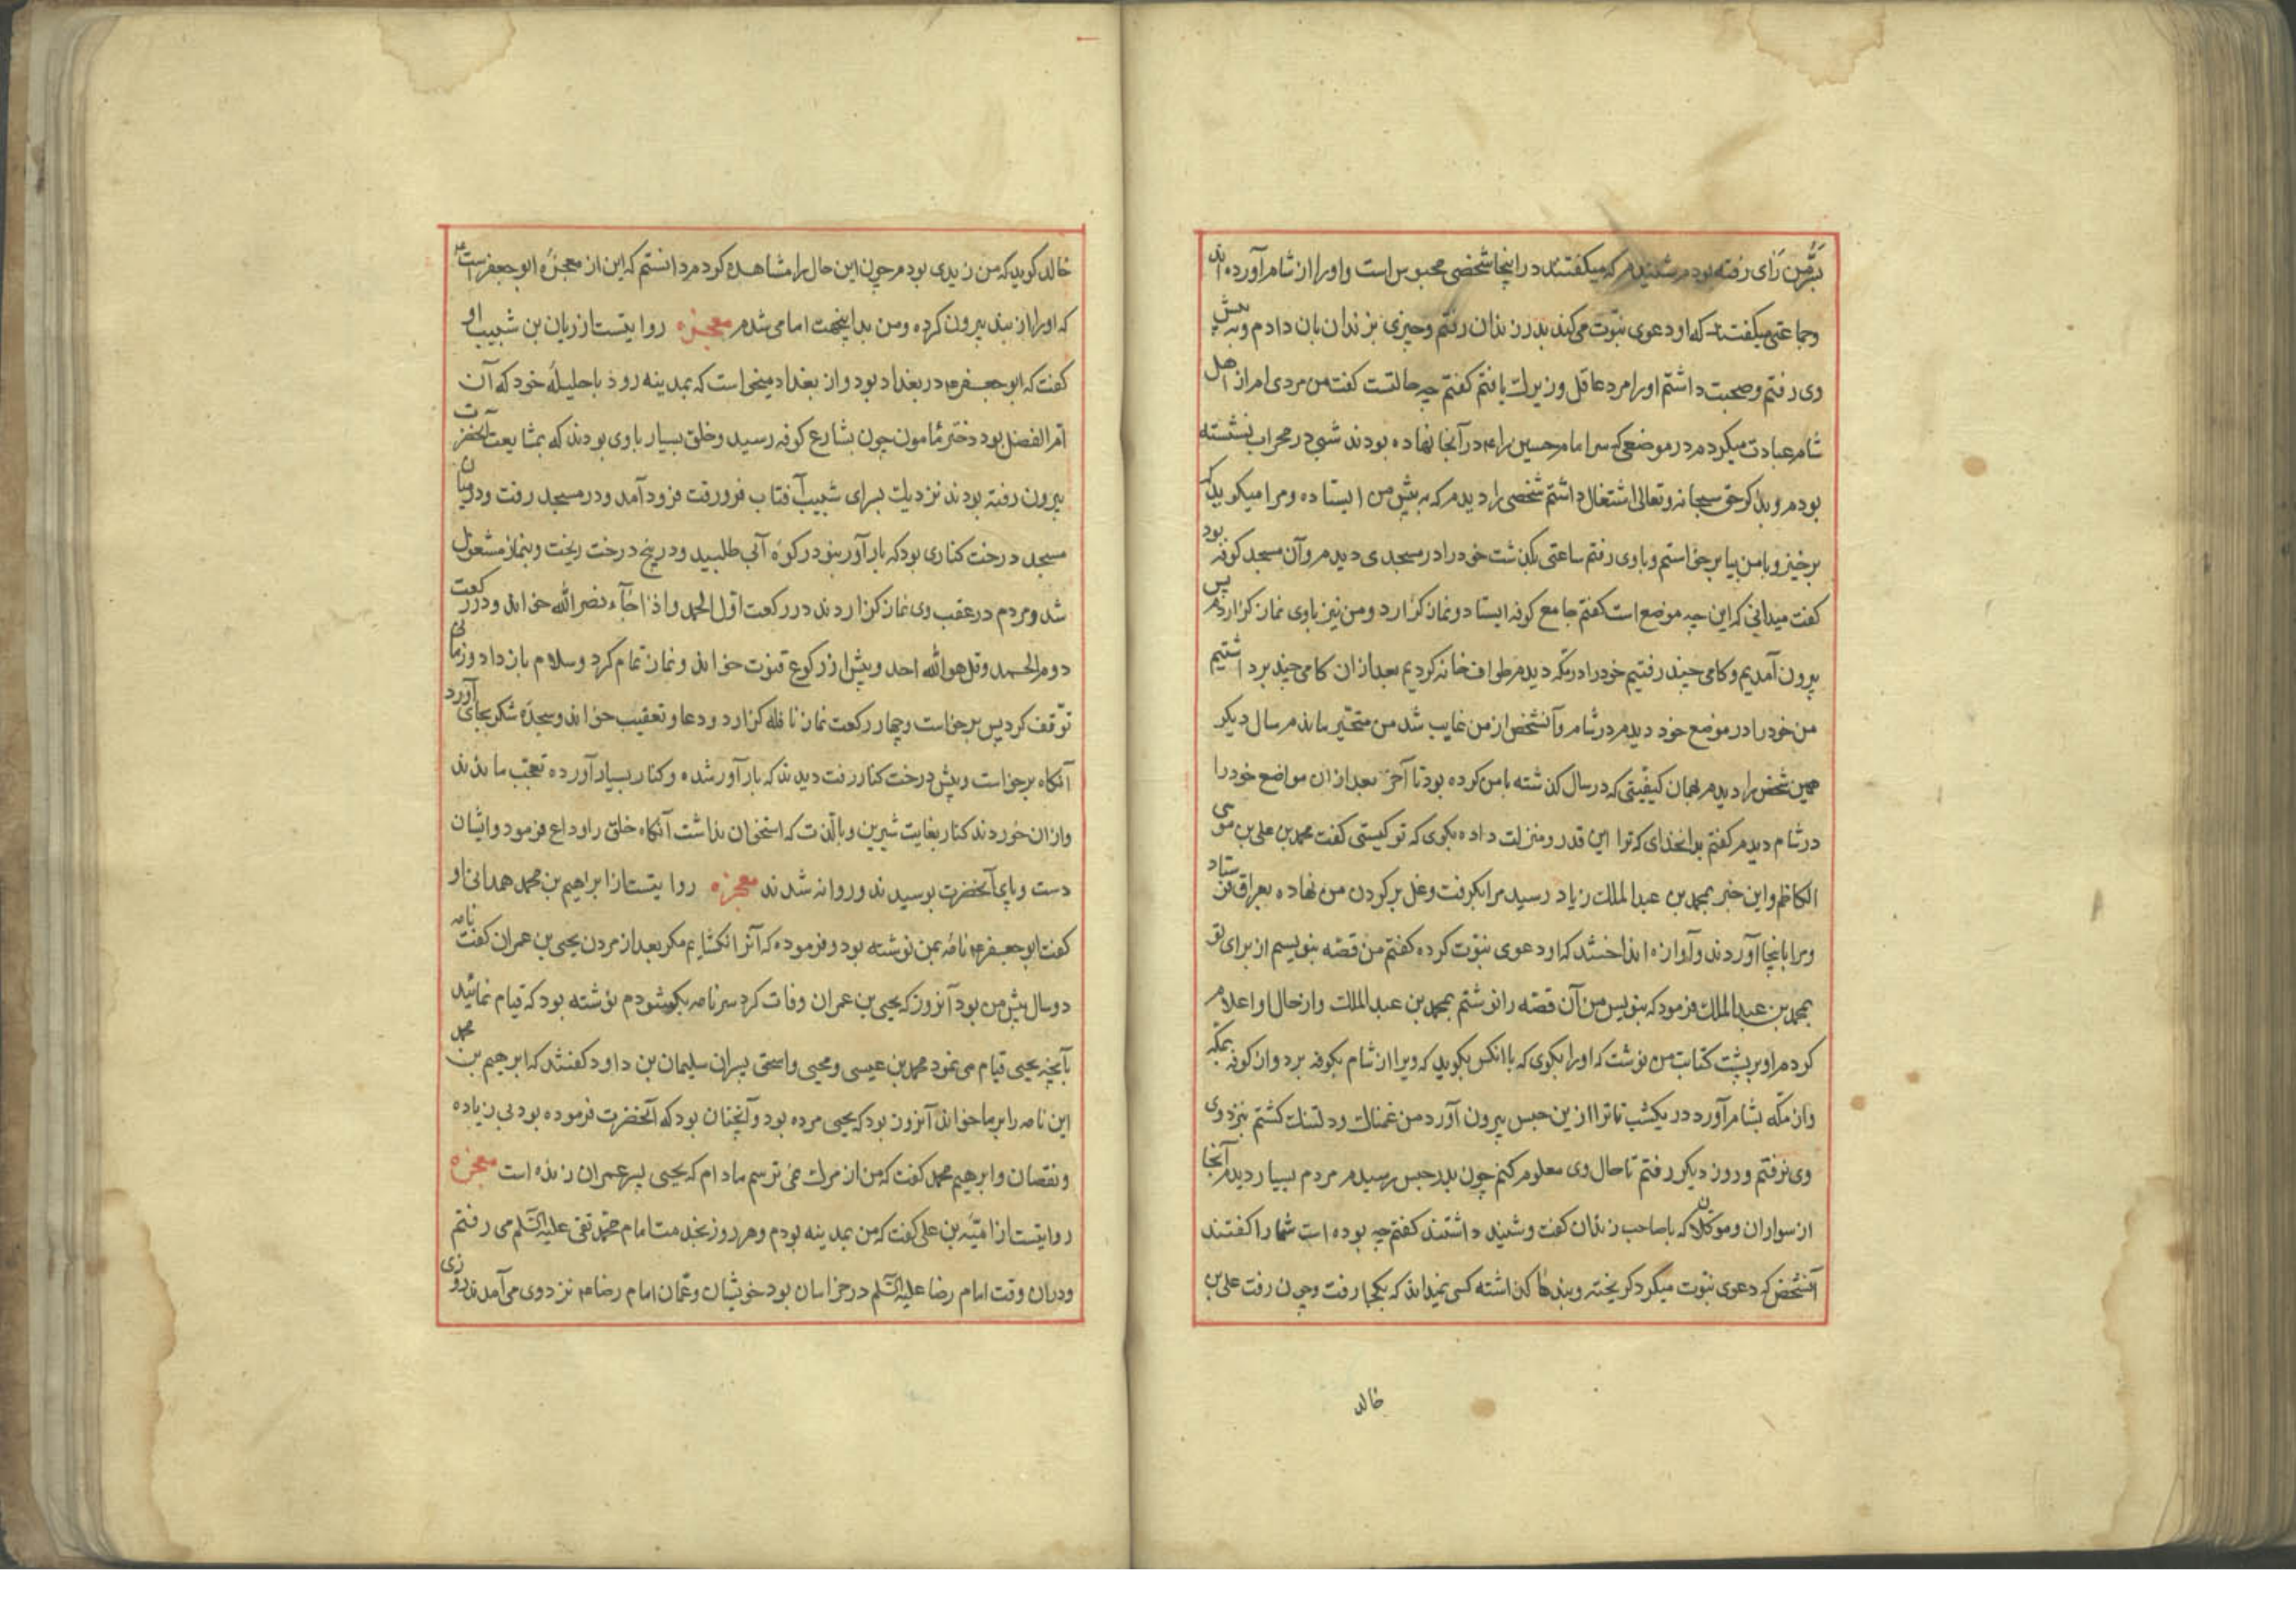 بسُرّ من رَای رفته بودم شنیدم که میکفتند در اینجا شخصی محبوس است و او را از شام آورده اند
وجماعتی میکفتند که او دعوی نبّوت می‌کند بدر زندان رفتم وچیزی بزندان بان دادم وبه پیش
وی رفتم وصحبت داشتم او را مرد عاقل وزیرك یافتم کفتم چه حالتست کفت من مردی ام از اهل
شام عبادت میکردم در موضعی که سر امام حسین را ع در آنجا نهاده بودند شبی در محراب نشسته
بودم وبذکر حق سبحانه وتعالی اشتغال داشتم شخصی را دیدم که به پیش من ایستاده ومرا میکوید که
برخیز وبا من بیا برخواستم وباوی رفتم ساعتی بکذشت خود را در مسجدی دیدم وآن مسجد کوفه بود
کفت میدانی که این چه موضع است کفتم جامع کوفه ایستاد ونماز کزارد ومن نیز باوی نماز کزاردم پس
بیرون آمدیم وکامی چند رفتیم خود را در مکّه دیدم طواف خانه کردیم بعد ازان کامی چند برداشتیم
من خود را در موضع خود دیدم در شام وآنشخص از من غایب شد من متحیّر ماندم سال دیکر
همین شخص را دیدم بهمان کیفیّتی که در سال کذشته با من کرده بود تا آخر بعد ازان مواضع خود را
در شام دیدم کفتم بدانخدای که ترا این قدر ومنزلت داده بکوی که تو کیستی کفت محمد بن علی بن موسی
الکاظم واین خبر بمحمد بن عبد الملك زیاد رسید مرا بکرفت وغل بر کردن من نهاده بعراق فرستاد
ومرا باینجا آوردند وآوازه انداختند که او دعوی نبّوت کرده کفتم من قصّه بنویسم از برای تو
بمحمد بن عبد الملك فرمود که بنویس من آن قصّه را نوشتم بمحمد بن عبد الملك واز حال او اعلام
کردم او بر پشت کتابت من نوشت که او را بکوی که با انکس بکوید که ویرا از شام بکوفه برد واز کوفه بمکّه
واز مکّه بشام آورد در یکشب تا ترا ازین حبس بیرون آورد من غمناك ودلتنك کشتم بنزد وی
وی نرفتم وروز دیکر رفتم تا حال وی معلوم کنم چون بدر حبس رسیدم مردم بسیار دیدم آنجا
از سواران وموکلان که با صاحب زندان کفت وشنید داشتند کفتم چه بوده است شما را کفتند
آنشخص که دعوی نبّوت میکرد کریخته وبندها کذاشته کسی نمیداند که بکجا رفت وچون رفت علی بن
خالد
خالد کوید که من زیدی بودم چون این حال را مشاهده کردم دانستم که این از معجزهٔ ابو جعفر است ع
که او را از بند بیرون کرده ومن بداینجهت امامی شدم معجزه روایتست از ریان بن شبیب او
کفت که ابو جعفر ع در بغداد بود واز بغداد میخواست که بمدینه رود با حلیلهٔ خود که آن
ام الفضل بود دختر مامون چون بشارع کوفه رسید وخلق بسیار باوی بودند که بمشایعت آنحضرت
بیرون رفته بودند نزدیك بسرای شبیب آفتاب فرورفت فرود آمد ودر مسجد رفت ودر میان
مسجد درخت کناری بود که بار آور نبود در کوزه آبی طلبید ودر بیخ درخت ریخت وبنماز مشغول
شد ومردم در عقب وی نماز کزاردند در رکعت اوّل الحمد واذا جَاء نصر الله خواند ودر رکعت
دوم الحمد وقل هو الله احد وپیش از رکوع قنوت خواند ونماز تمام کرد وسلام باز داد وزمانی
توّقف کرد پس برخاست وچهار رکعت نماز نافله کزارد ودعا وتعقیب خواند وسجدهٔ شکر بجای آورد
آنکاه برخواست وپیش درخت کنار رفت دیدند که بار آور شده وکنار بسیار آورده تعجّب ماندند
وازان خوردند کنار بغایت شیرین وبا لذّت که استخوان نداشت آنکاه خلق را وداع فرمود وایشان
دست وپای آنحضرت بوسیدند وروانه شدند معجزه روایتست از ابراهیم بن محمد همدانی او
کفت ابو جعفر ع نامهٔ بمن نوشته بود وفرموده که آنرا نکشایم مکر بعد از مردن یحیی بن عمران کفت نامه
دو سال پیش من بود آنروز که یحیی بن عمران وفات کرد سر نامه بکشودم نوشته بود که قیام نمائید
بآنچه یحیی قیام می نمود محمد بن عیسی ومحیی واسحق پسران سلیمان بن داود کفتند که ابرهیم بن محمد
این نامه را بر ما خواند آنروز بود که یحیی مرده بود وآنچنان بود که آنحضرت فرموده بود بی زیاده
ونقصان وابرهیم محمد کفت که من از مرك نمی ترسم مادام که یحیی پسر عمران زنده است معجزه
روایتست از امیّه بن علی کفت که من بمدینه بودم وهر روز بخدمت امام محمّد تقی علیه السّلم می رفتم
ودران وقت امام رضا علیه السّلم در خراسان بود خویشان وعمّان امام رضا ع نزد وی می آمدند روزی